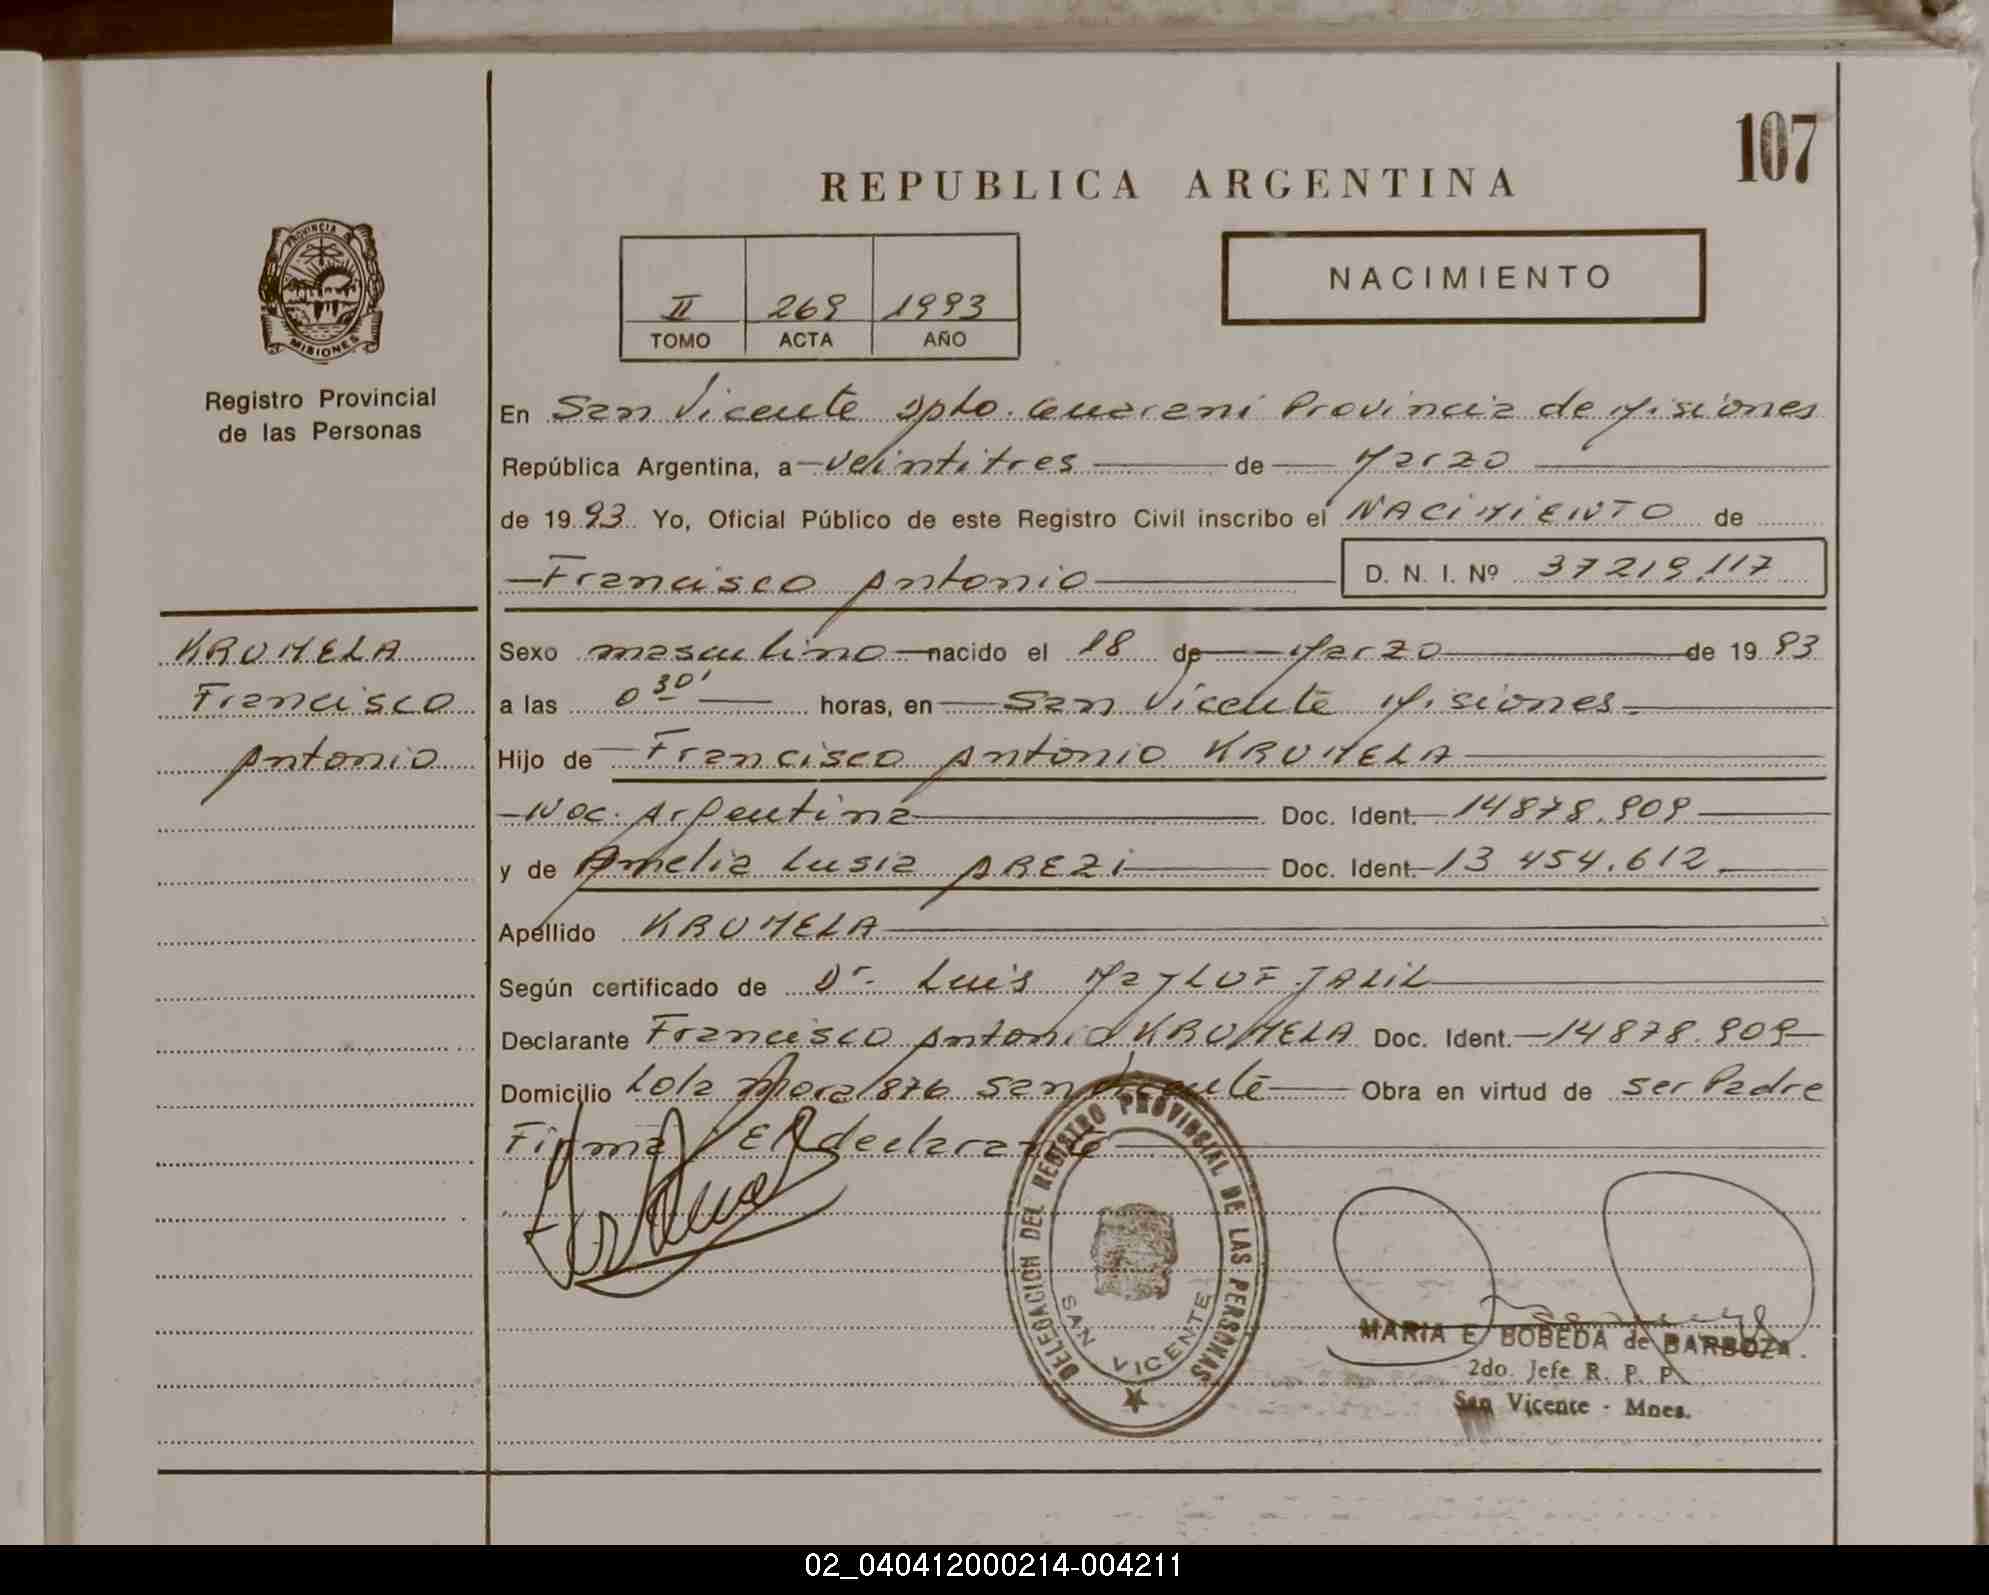 107
REPUBLICA ARGENTINA
PROVINCIA DE
MISIONES
Registro Provincial
de las Personas
II 269 1993
TOMO ACTA AÑO
NACIMIENTO
En San Vicente Dpto. Guarani Provincia de Misiones
República Argentina, a veintitres de Marzo
de 1993 Yo, Oficial Público de este Registro Civil inscribo el NACIMIENTO de
Francisco Antonio D. N. I. Nº 37219.117
KRUMELA
Francisco
Antonio
Sexo masculino nacido el 18 de Marzo de 1993
a las 0 30' horas, en San Vicente Misiones.
Hijo de Francisco Antonio KRUMELA
Nac. Argentina Doc. Ident. 14878.909
y de Amelia Lusia AREZI Doc. Ident. 13 454.612
Apellido KRUMELA
Según certificado de Dr. Luis JALIL
Declarante Francisco Antonio KRUMELA Doc. Ident. 14878.909
Domicilio Lola Mora 876 San Vicente Obra en virtud de ser Padre
Firma El declarante
DELEGACION DEL REGISTRO PROVINCIAL DE LAS PERSONAS
SAN VICENTE
MARIA E. BOBEDA de BARBOZA.
2do. Jefe R. P. P.
San Vicente - Mnes.
02_040412000214-004211